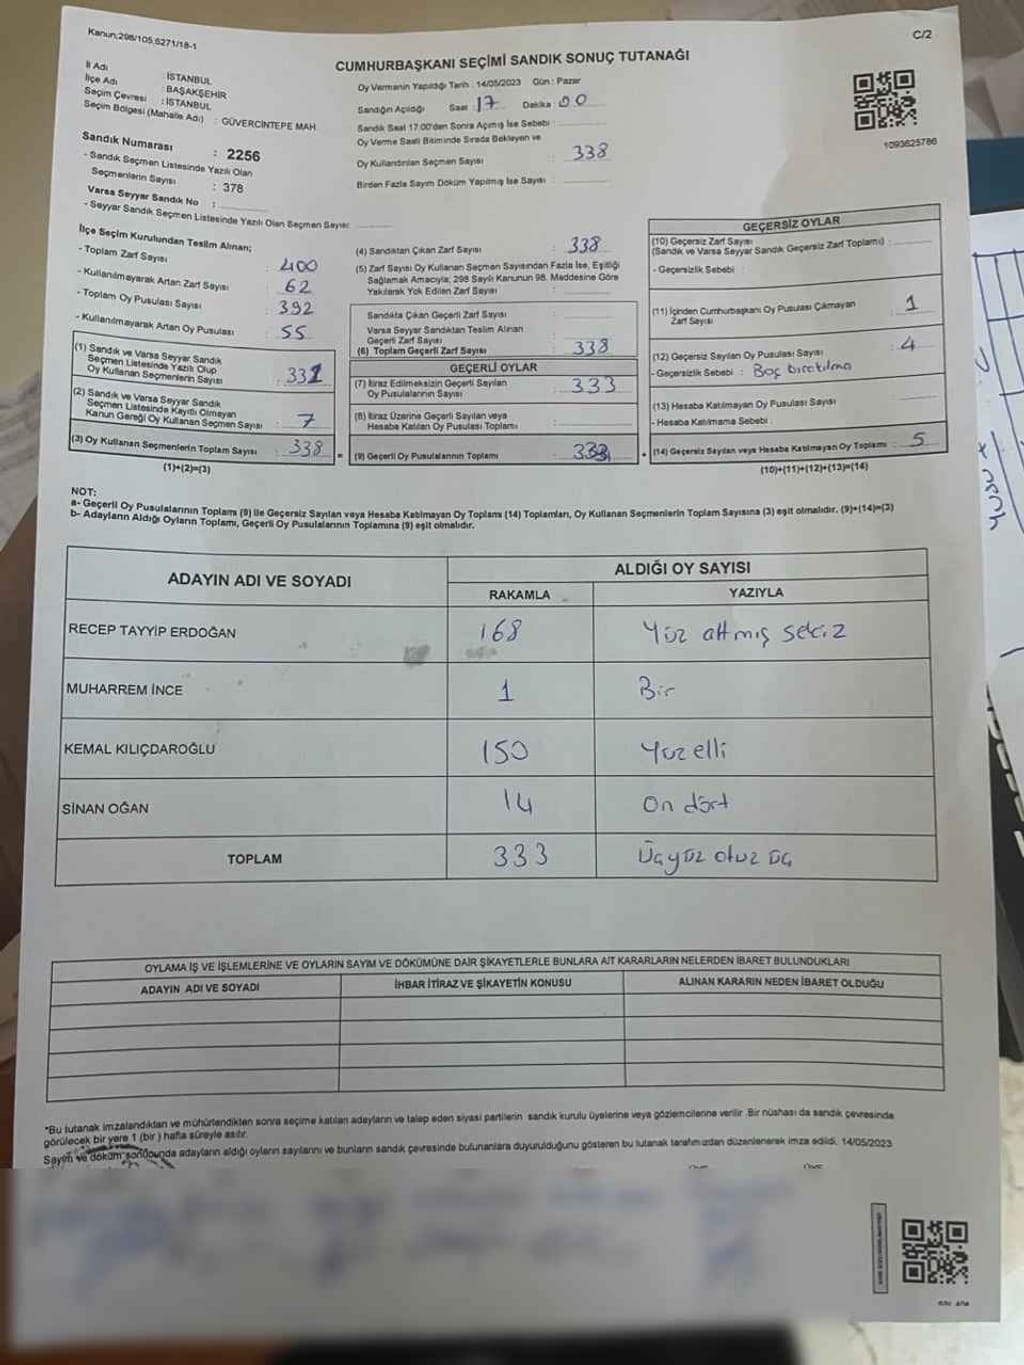 Kanun;298/105,6271/18-1
C/2
CUMHURBAŞKANI SEÇİMİ SANDIK SONUÇ TUTANAĞI
İl Adı : İSTANBUL
İlçe Adı : BAŞAKŞEHİR
Seçim Çevresi : İSTANBUL
Seçim Bölgesi (Mahalle Adı) : GÜVERCİNTEPE MAH.
Sandık Numarası : 2256
- Sandık Seçmen Listesinde Yazılı Olan
Seçmenlerin Sayısı : 378
Varsa Seyyar Sandık No :
- Seyyar Sandık Seçmen Listesinde Yazılı Olan Seçmen Sayısı
Oy Vermenin Yapıldığı Tarih : 14/05/2023 Gün : Pazar
Sandığın Açıldığı Saat : 17 Dakika : 00
Sandık Saat 17.00'den Sonra Açılmış İse Sebebi :
Oy Verme Saati Bitiminde Sırada Bekleyen ve
Oy Kullandırılan Seçmen Sayısı : 338
Birden Fazla Sayım Döküm Yapılmış İse Sayısı :
1093625786
İlçe Seçim Kurulundan Teslim Alınan;
- Toplam Zarf Sayısı : 400
- Kullanılmayarak Artan Zarf Sayısı : 62
- Toplam Oy Pusulası Sayısı : 392
- Kullanılmayarak Artan Oy Pusulası : 55
(1) Sandık ve Varsa Seyyar Sandık
Seçmen Listesinde Yazılı Olup
Oy Kullanan Seçmenlerin Sayısı : 331
(2) Sandık ve Varsa Seyyar Sandık
Seçmen Listesinde Kayıtlı Olmayan
Kanun Gereği Oy Kullanan Seçmen Sayısı : 7
(3) Oy Kullanan Seçmenlerin Toplam Sayısı : 338
(1)+(2)=(3)
(4) Sandıktan Çıkan Zarf Sayısı : 338
(5) Zarf Sayısı Oy Kullanan Seçmen Sayısından Fazla İse, Eşitliği
Sağlamak Amacıyla, 298 Sayılı Kanunun 98. Maddesine Göre
Yakılarak Yok Edilen Zarf Sayısı :
Sandıkta Çıkan Geçerli Zarf Sayısı :
Varsa Seyyar Sandıktan Teslim Alınan
Geçerli Zarf Sayısı :
(6) Toplam Geçerli Zarf Sayısı : 338
GEÇERLİ OYLAR
(7) İtiraz Edilmeksizin Geçerli Sayılan
Oy Pusulalarının Sayısı : 333
(8) İtiraz Üzerine Geçerli Sayılan veya
Hesaba Katılan Oy Pusulası Toplamı :
(9) Geçerli Oy Pusulalarının Toplamı : 333
GEÇERSİZ OYLAR
(10) Geçersiz Zarf Sayısı
(Sandık ve Varsa Seyyar Sandık Geçersiz Zarf Toplamı) :
- Geçersizlik Sebebi :
(11) İçinden Cumhurbaşkanı Oy Pusulası Çıkmayan
Zarf Sayısı : 1
(12) Geçersiz Sayılan Oy Pusulası Sayısı : 4
- Geçersizlik Sebebi : Boş bırakılma
(13) Hesaba Katılmayan Oy Pusulası Sayısı :
- Hesaba Katılmama Sebebi :
(14) Geçersiz Sayılan veya Hesaba Katılmayan Oy Toplamı : 5
(10)+(11)+(12)+(13)=(14)
NOT:
a- Geçerli Oy Pusulalarının Toplamı (9) ile Geçersiz Sayılan veya Hesaba Katılmayan Oy Toplamı (14) Toplamları, Oy Kullanan Seçmenlerin Toplam Sayısına (3) eşit olmalıdır. (9)+(14)=(3)
b- Adayların Aldığı Oyların Toplamı, Geçerli Oy Pusulalarının Toplamına (9) eşit olmalıdır.
ADAYIN ADI VE SOYADI
ALDIĞI OY SAYISI
RAKAMLA YAZIYLA
RECEP TAYYİP ERDOĞAN 168 Yüz altmış sekiz
MUHARREM İNCE 1 Bir
KEMAL KILIÇDAROĞLU 150 Yüz elli
SİNAN OĞAN 14 On dört
TOPLAM 333 Üçyüz otuz üç
OYLAMA İŞ VE İŞLEMLERİNE VE OYLARIN SAYIM VE DÖKÜMÜNE DAİR ŞİKAYETLERLE BUNLARA AİT KARARLARIN NELERDEN İBARET BULUNDUKLARI
ADAYIN ADI VE SOYADI İHBAR İTİRAZ VE ŞİKAYETİN KONUSU ALINAN KARARIN NEDEN İBARET OLDUĞU
*Bu tutanak imzalandıktan ve mühürlendikten sonra seçime katılan adayların ve talep eden siyasi partilerin sandık kurulu üyelerine veya gözlemcilerine verilir. Bir nüshası da sandık çevresinde
görülecek bir yere 1 (bir) hafta süreyle asılır.
Sayım ve döküm sonucunda adayların aldığı oyların sayılarını ve bunların sandık çevresinde bulunanlara duyurulduğunu gösteren bu tutanak tarafımızdan düzenlenerek imza edildi. 14/05/2023